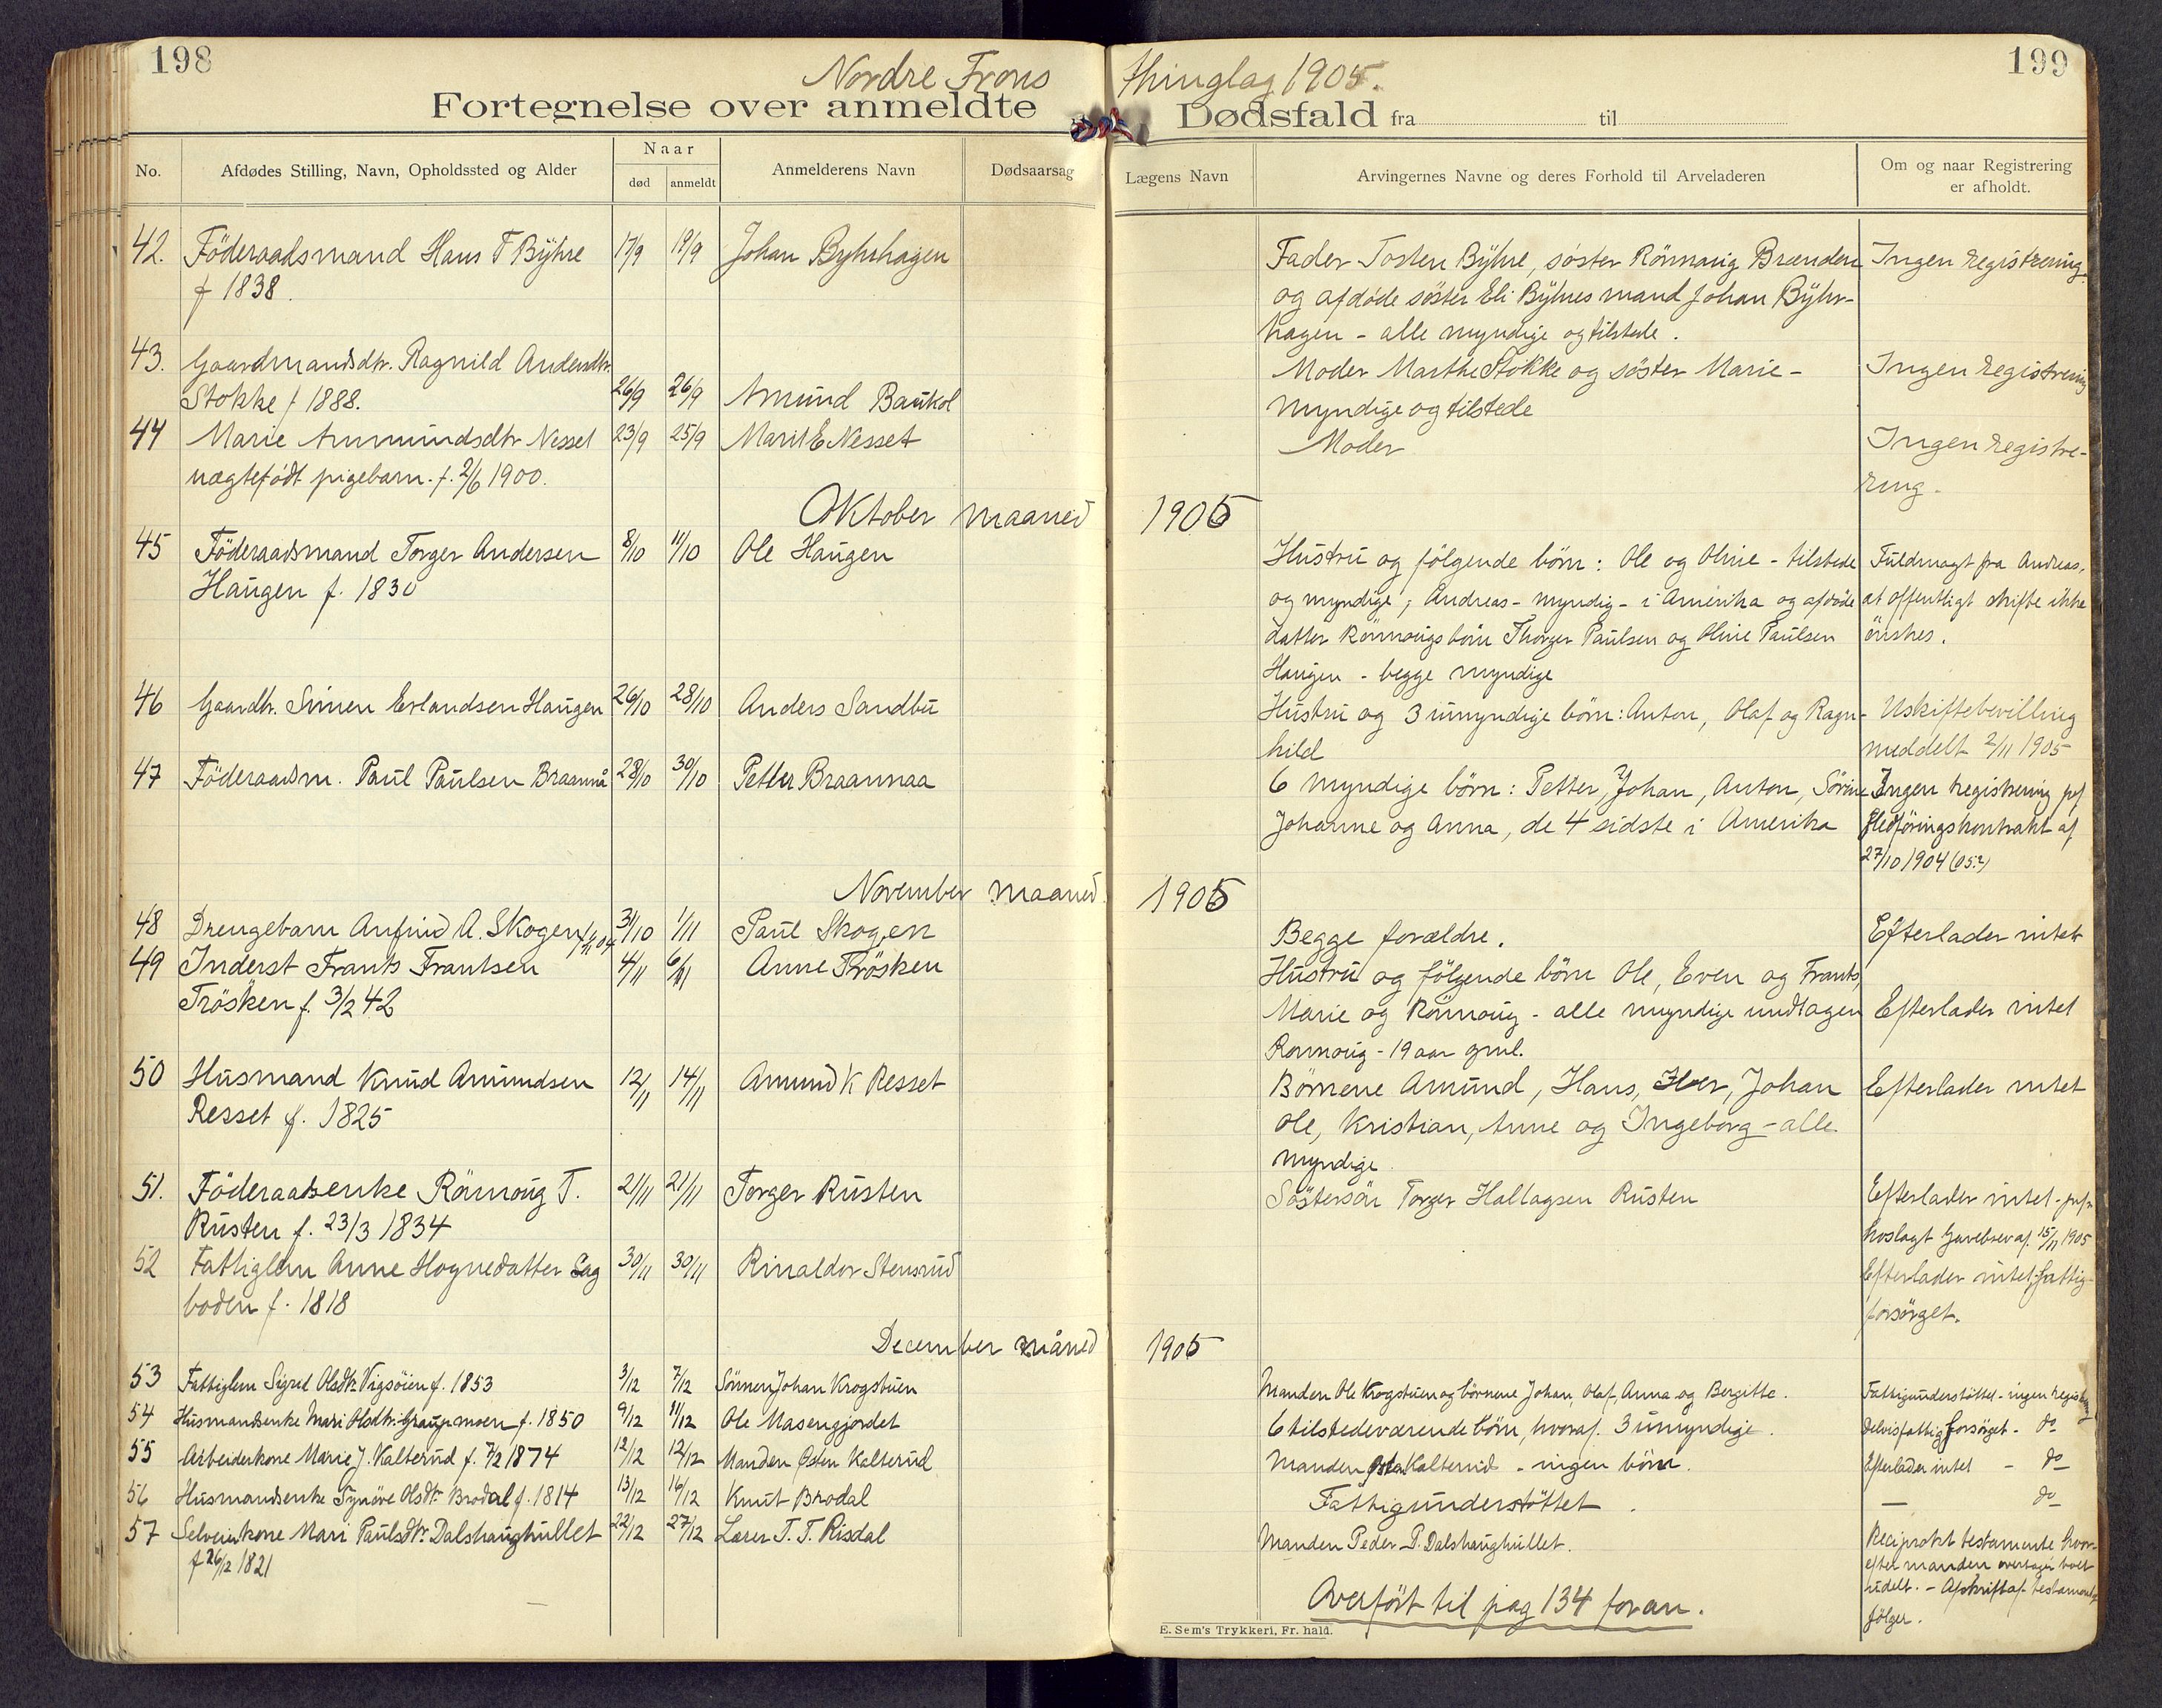 198
Nordre Frons
Fortegnelse over anmeldte
No.
Afdødes Stilling, Navn, Opholdssted og Alder
Naar
død
anmeldt
Anmelderens Navn
Dødsaarsag
42. Föderaadsmand Hans T Byhre 17/9 19/9 Johan Byhrhagen
f 1838.
43. Gaardmandsdtr. Ragnild Andersdtr.
Stokke f 1888. 26/9 26/9 Amund Baukol
44 Marie Ammundsdtr Nesset 23/9 25/9 Marit E Nesset
uægtefødt pigebarn. f. 2/6 1900.
Oktober maaned
45 Föderaadsmand Torger Andersen 8/10 11/10 Ole Haugen
Haugen f. 1830
46 Gaardbr. Simen Erlandsen Haugen 26/10 28/10 Anders Sandbu
47 Föderaadsm. Paul Paulsen Braannå 28/10 30/10 Petter Braannaa
November maaned
48 Drengebarn Anfind A. Skogen 31/10 1/11 Paul Skogen
49 Inderst Frants Frantsen 4/11 6/11 Anne Trösken
Trösken f. 3/2 42
50 Husmand Knud Amundsen 12/11 14/11 Amund K Resset
Resset f. 1825
51. Föderaadsenke Rönnoug T. 21/11 21/11 Torger Rusten
Rusten f. 23/3 1834
52 Fattiglem Anne Hognedatter Sag 30/11 30/11 Rinaldor Stensrud
boden f. 1818
December måned
53 Fattiglem Sigrid Olsdtr. Vigsöien f. 1853 3/12 7/12 Sönnen Johan Krogstuen
54 Husmandsenke Mari Olsdtr. Graupmoen f. 1850 9/12 11/12 Ole Masengjordet
55 Arbeiderkone Marie J. Kalterud f. 7/2 1874 12/12 12/12 Manden Østen Kalterud
56 Husmandsenke Synöve Olsdtr. Brodal f. 1814 13/12 16/12 Knut Brodal
57 Selveierkone Mari Paulsdtr. Dalshaughullet 22/12 27/12 Lærer T. T. Risdal
f 26/12 1821
199
thinglag 1905.
Dødsfald fra til
Lægens Navn
Arvingernes Navne og deres Forhold til Arveladeren
Om og naar Registrering
er afholdt.
Fader Tosten Byhre, söster Rönnaug Brænden Ingen registrering.
og afdöde söster Eli Byhres mand Johan Byhr-
hagen - alle myndige og tilstede.
Moder Marthe Stokke og söster Marie - Ingen registrering
myndige og tilstede
Moder Ingen registre-
ring.
1905
Hustru og fölgende börn: Ole og Oline - tilstede Fuldmagt fra Andreas,
og myndige; Andreas - myndig - i Amerika og afdöde at offentligt skifte ikke
datter Rönnougs börn Thorger Paulsen og Oline Paulsen önskes.
Haugen - begge myndige
Hustru og 3 umyndige börn: Anton, Olaf og Ragn- Uskiftebevilling
hild meddelt 2/11 1905
6 myndige börn: Petter, Johan, Anton, Sörine Ingen registrering pgf
Johanne og Anna, de 4 sidste i Amerika Fledföringskontrakt af
27/10 1904 (05?)
1905
Begge forældre. Efterlader intet
Hustru og fölgende börn Ole, Even og Frants,
Marie og Rönnoug - alle myndige undtagen Efterlader intet
Rönnoug - 19 aar gml.
Börnene Amund, Hans, Iver, Johan Efterlader intet
Ole, Kristian, Anne og Ingeborg - alle
myndige.
Söstersön Torger Hallagsen Rusten Efterlader intet -
hoslagt Gavebrev af 15/11 1905
Efterlader intet, fattig-
forsörget.
1905
Manden Ole Krogstuen og börnene Johan, Olaf, Anna og Bergitte. Fattigunderstöttet - ingen registrering
6 tilstedeværende börn, hvoraf 3 umyndige. Delvis fattigforsörget - do
Manden Østen Kalterud - ingen börn. Efterlader intet - do
Fattigunderstöttet. — do
Manden Peder P. Dalshaughullet. Reciprokt testamente hvor-
efter manden overtager boet
udelt. - Afskrift af testamentet
fölger.
Overfört til pag 134 foran.
E. Sem's Trykkeri, Fr. hald.